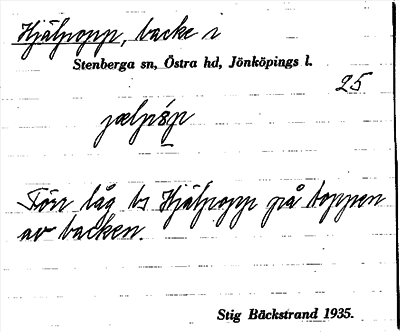 Hjälpopp, backe i
Stenberga sn, Östra hd, Jönköpings l.
25
Förr låg ts Hjälpopp på toppen
av backen.
Stig Bäckstrand 1935.